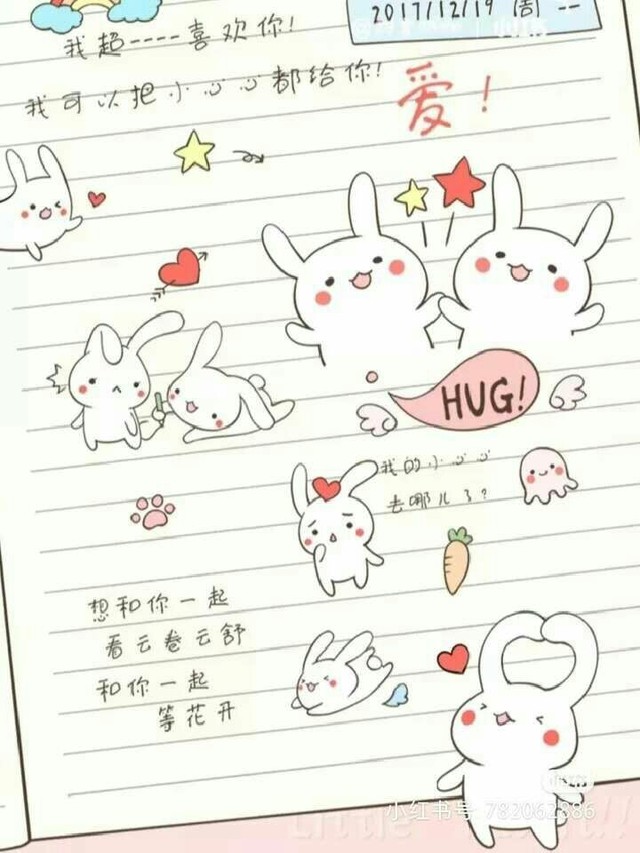 2017/12/19 周一
我超----喜欢你!
我可以把小心心都给你!
爱!
HUG!
我的小心心
去哪儿了?
想和你一起
看云卷云舒
和你一起
等花开
小红书号 782062886